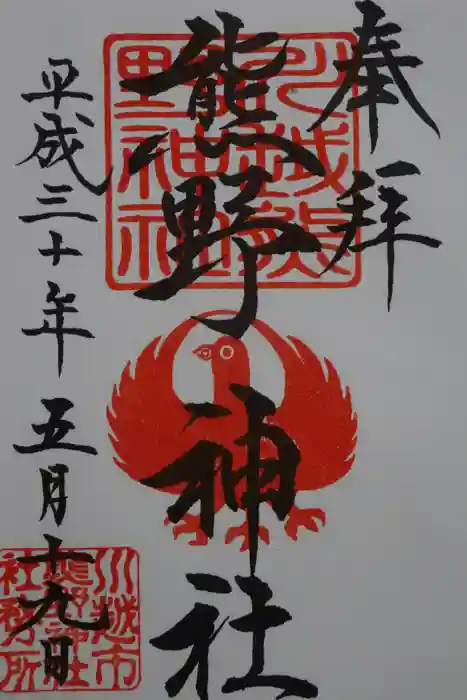 奉拝
熊野神社
平成三十年五月十九日
川越熊
野神社
川越市
熊野神社
社務所